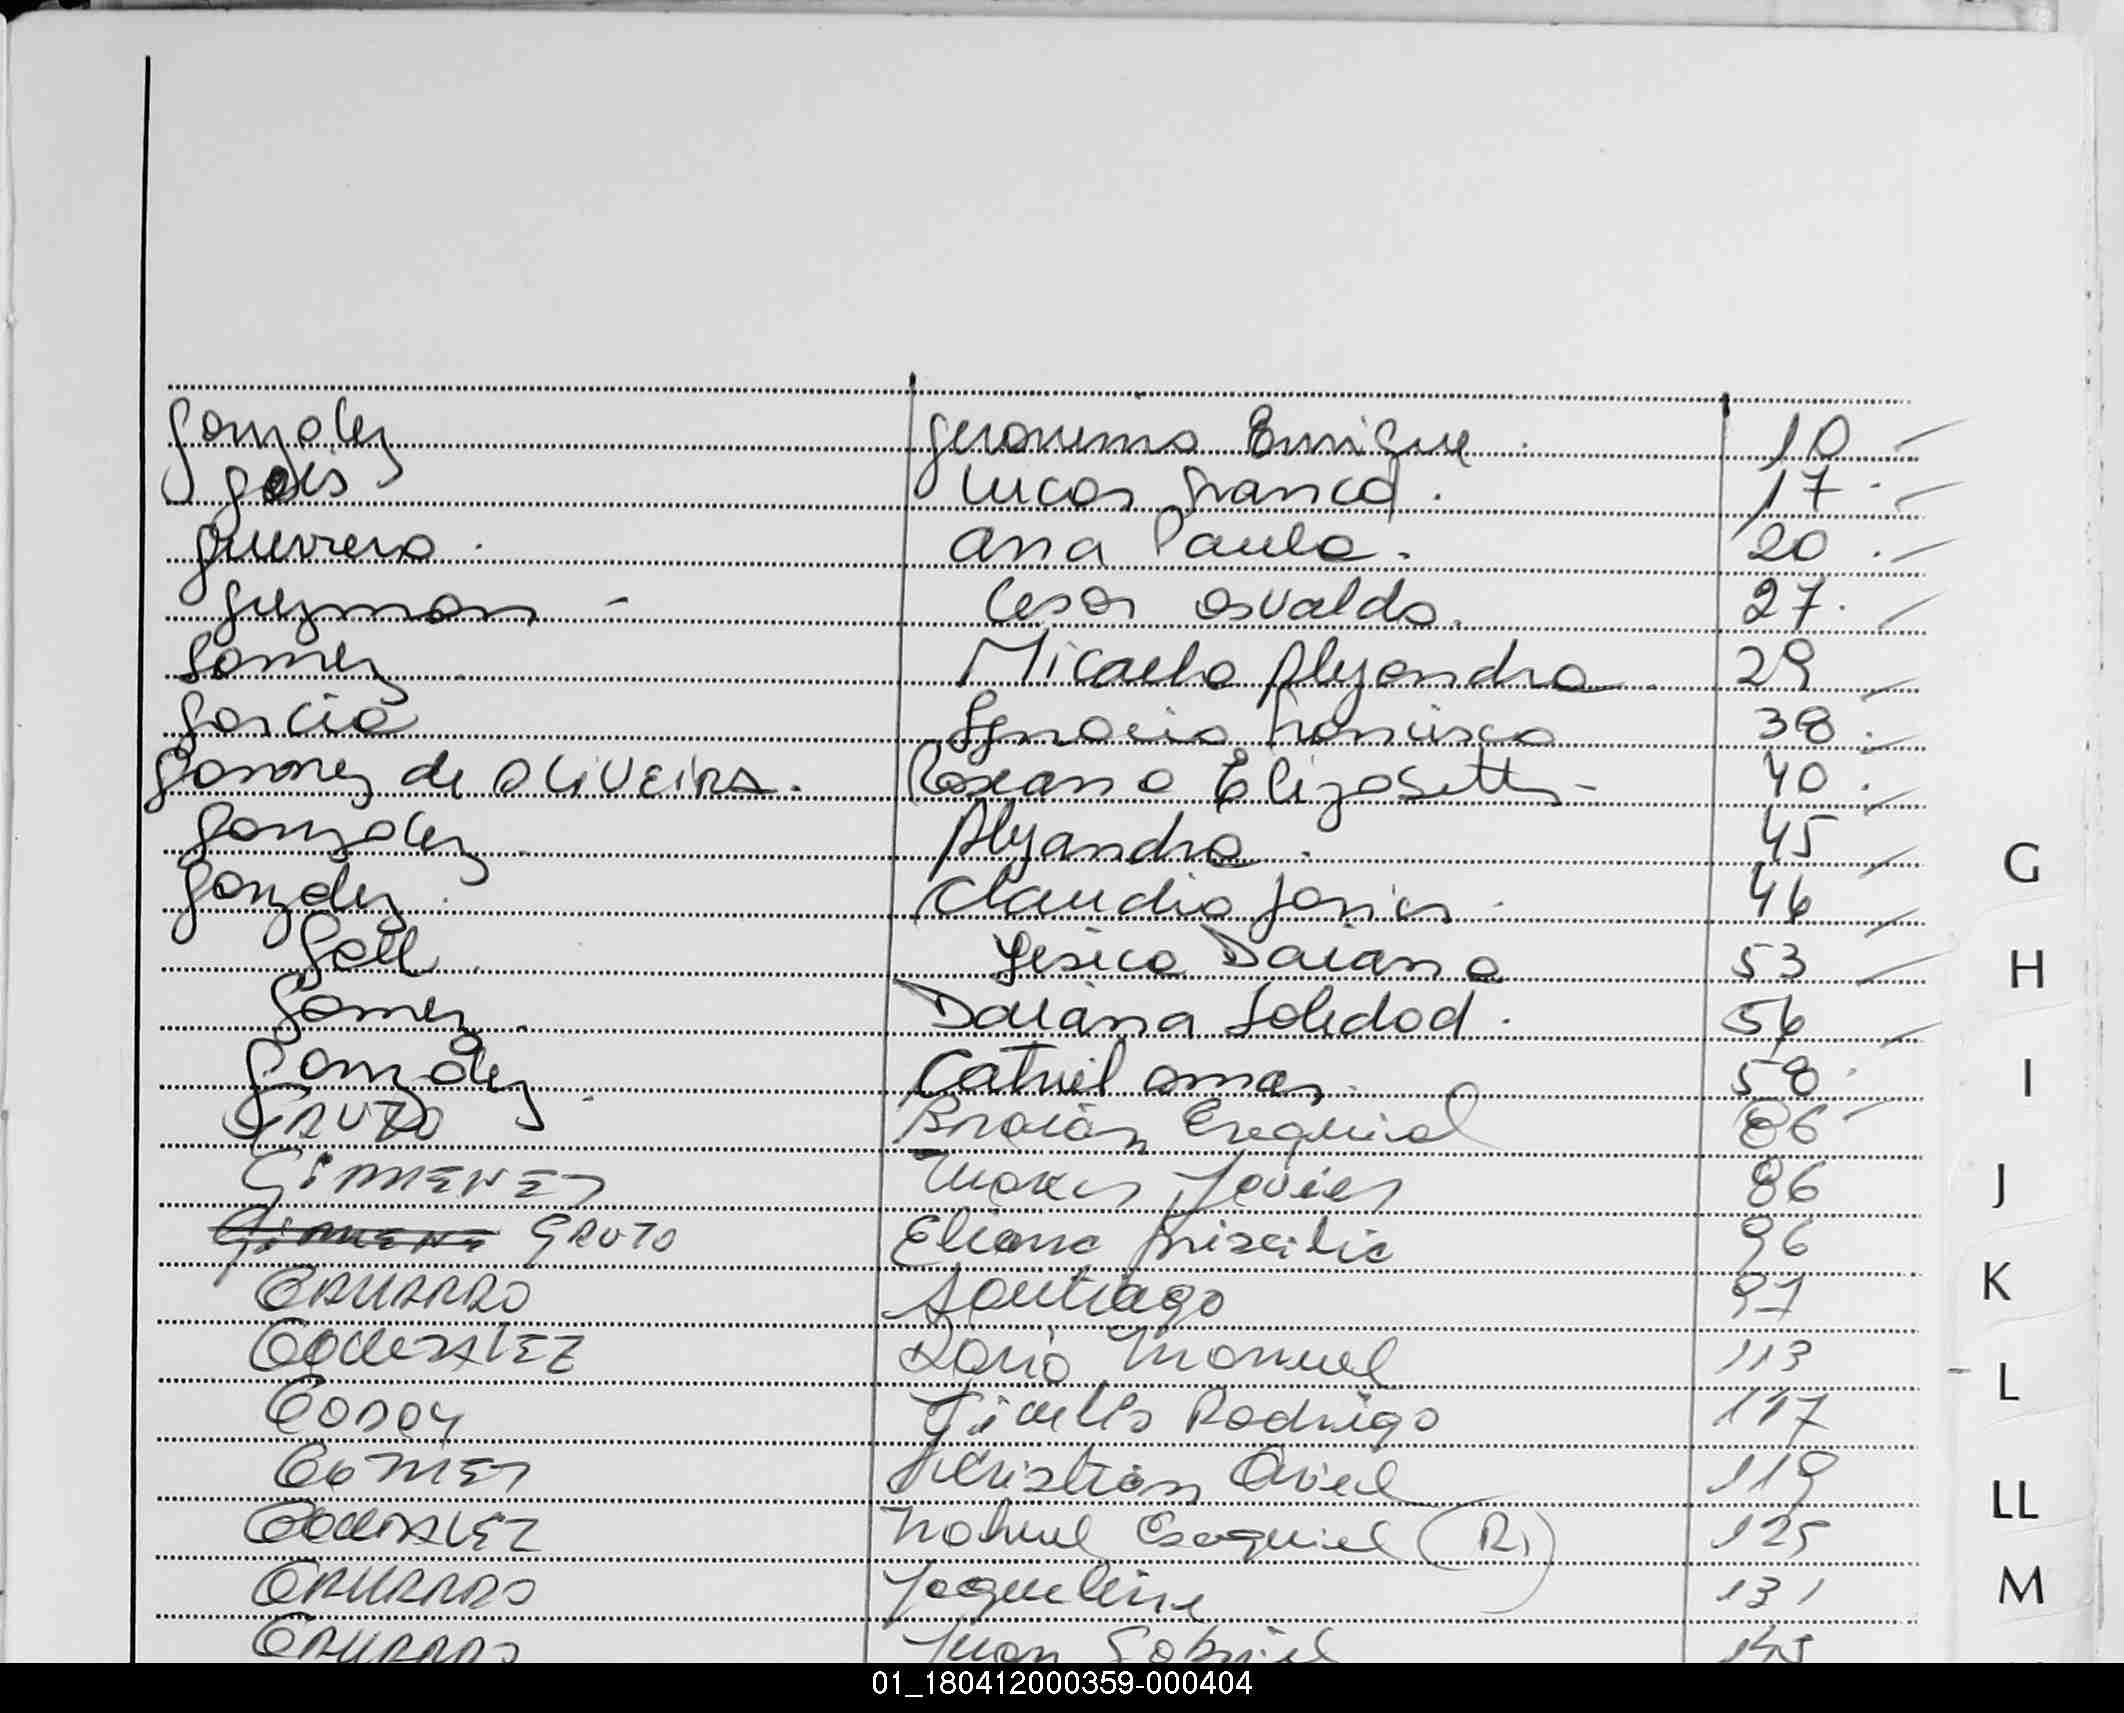 Gonzalez Geronimo Enrique. 10
Gois Lucas Franco. 17
Guerrero. Ana Paula. 20
Guzman - Cesar Osvaldo. 27
Gomez Micaela Alejandra 29
Garcia Ignacio Francisco 38
Gomez de OLIVEIRA. Roseana Elizabeth - 40
Gonzalez. Alejandra. 45
Gonzalez. Claudio Javier. 46
Gall. Yesica Daiana 53
Gomez. Daiana Soledad. 56
Gonzalez. Catriel Omar. 58
GRUTO Braian Ezequiel 86
GIMENEZ Javier 86
GIMENE GRUTO Eliana Priscila 96
GAMARRO Santiago 97
GONZALEZ Dario Manuel 113
GODOY Rodrigo 117
GOMEZ Kristian Ariel 119
GONZALEZ Nahuel Ezequiel (R) 125
GAMARRO Jaqueline 131
GAMARRO Juan Gabriel
G
H
I
J
K
L
LL
M
01_180412000359-000404